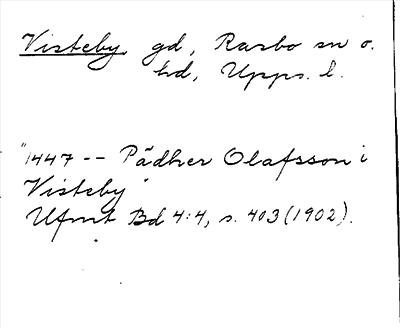 Visteby, gd, Rasbo sn o.
hd, Upps. l.
"1447 -- Pädher Olafsson i
Visteby"
Ufmt Bd 4:4, s. 403 (1902).